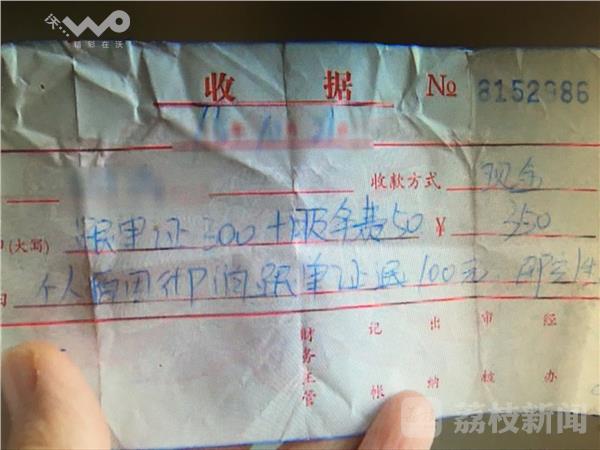 沃... WO
精彩在沃
收 据 № 8152986
收款方式 现金
(大写) 跟单证300+服务费50 ¥ 350
个人 跟单证退100元
财务主管 记帐 出纳 审核 经办
荔枝新闻